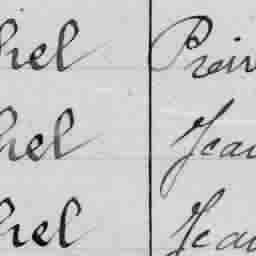 hel Prei
hel Jea
hel Jea